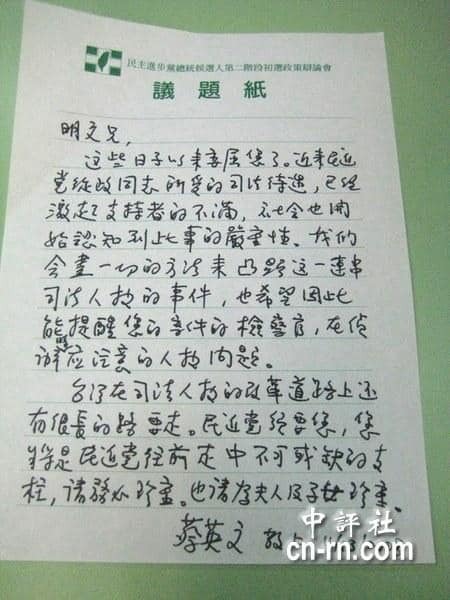 民主進步黨總統候選人第二階段初選政策辯論會
議題紙
明文兄，
这些日子以來委屈您了。近來民進
党從政同志所受的司法待遇，已經
激起支持者的不滿，社会也開
始認知到此事的嚴重性。我們
会盡一切的方法來凸顯這一連串
司法人权的事件，也希望因此
能提醒您的案件的檢察官，在偵
辦应注意的人权问題。
台湾在司法人权的改革道路上还
有很長的路要走。民進党須要您，您
将是民進党往前走中不可或缺的支
柱，请務必珍重。也請尊夫人及子女珍重。
蔡英文 敬上
中評社
cn-rn.com